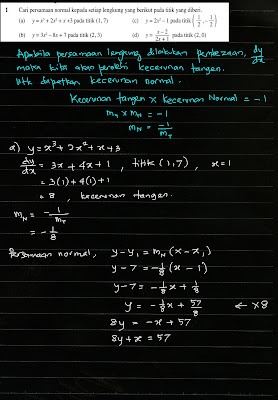 1 Cari persamaan normal kepada setiap lengkung yang berikut pada titik yang diberi.
(a) y = x³ + 2x² + x +3 pada titik (1, 7)
(c) y = 2x² – 1 pada titik (1/2, –1/2)
(b) y = 3x² – 8x + 7 pada titik (2, 3)
(d) y = (x – 2)/(2x + 1) pada titik (2, 0)
Apabila persamaan lengkung dilakukan pembezaan, dy/dx
maka kita akan peroleh kecerunan tangen.
Utk dapatkan kecerunan normal.
Kecerunan tangen x kecerunan Normal = -1
m_T x m_N = -1
m_N = -1/m_T
a) y = x³ + 2x² + x + 3
dy/dx = 3x + 4x + 1 , titik (1,7) , x = 1
= 3(1) + 4(1) + 1
= 8 , kecerunan tangen.
m_N = -1/m_T
= -1/8
Persamaan normal, y - y₁ = m_N (x - x₁)
y - 7 = -1/8 (x - 1)
y - 7 = -1/8 x + 1/8
y = -1/8 x + 57/8 ← x8
8y = -x + 57
8y + x = 57